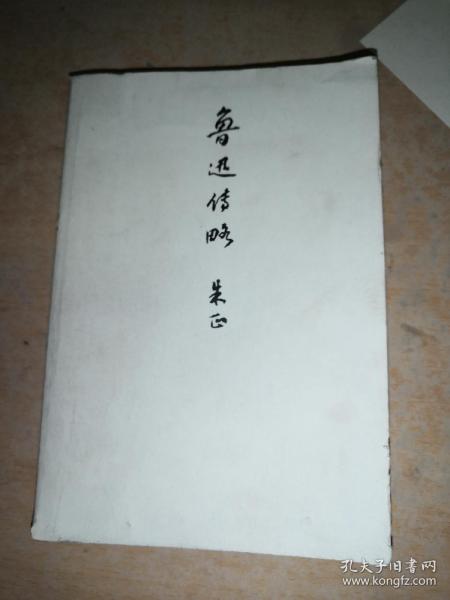 鲁迅传略 朱正
孔夫子旧书网
www.kongfz.com